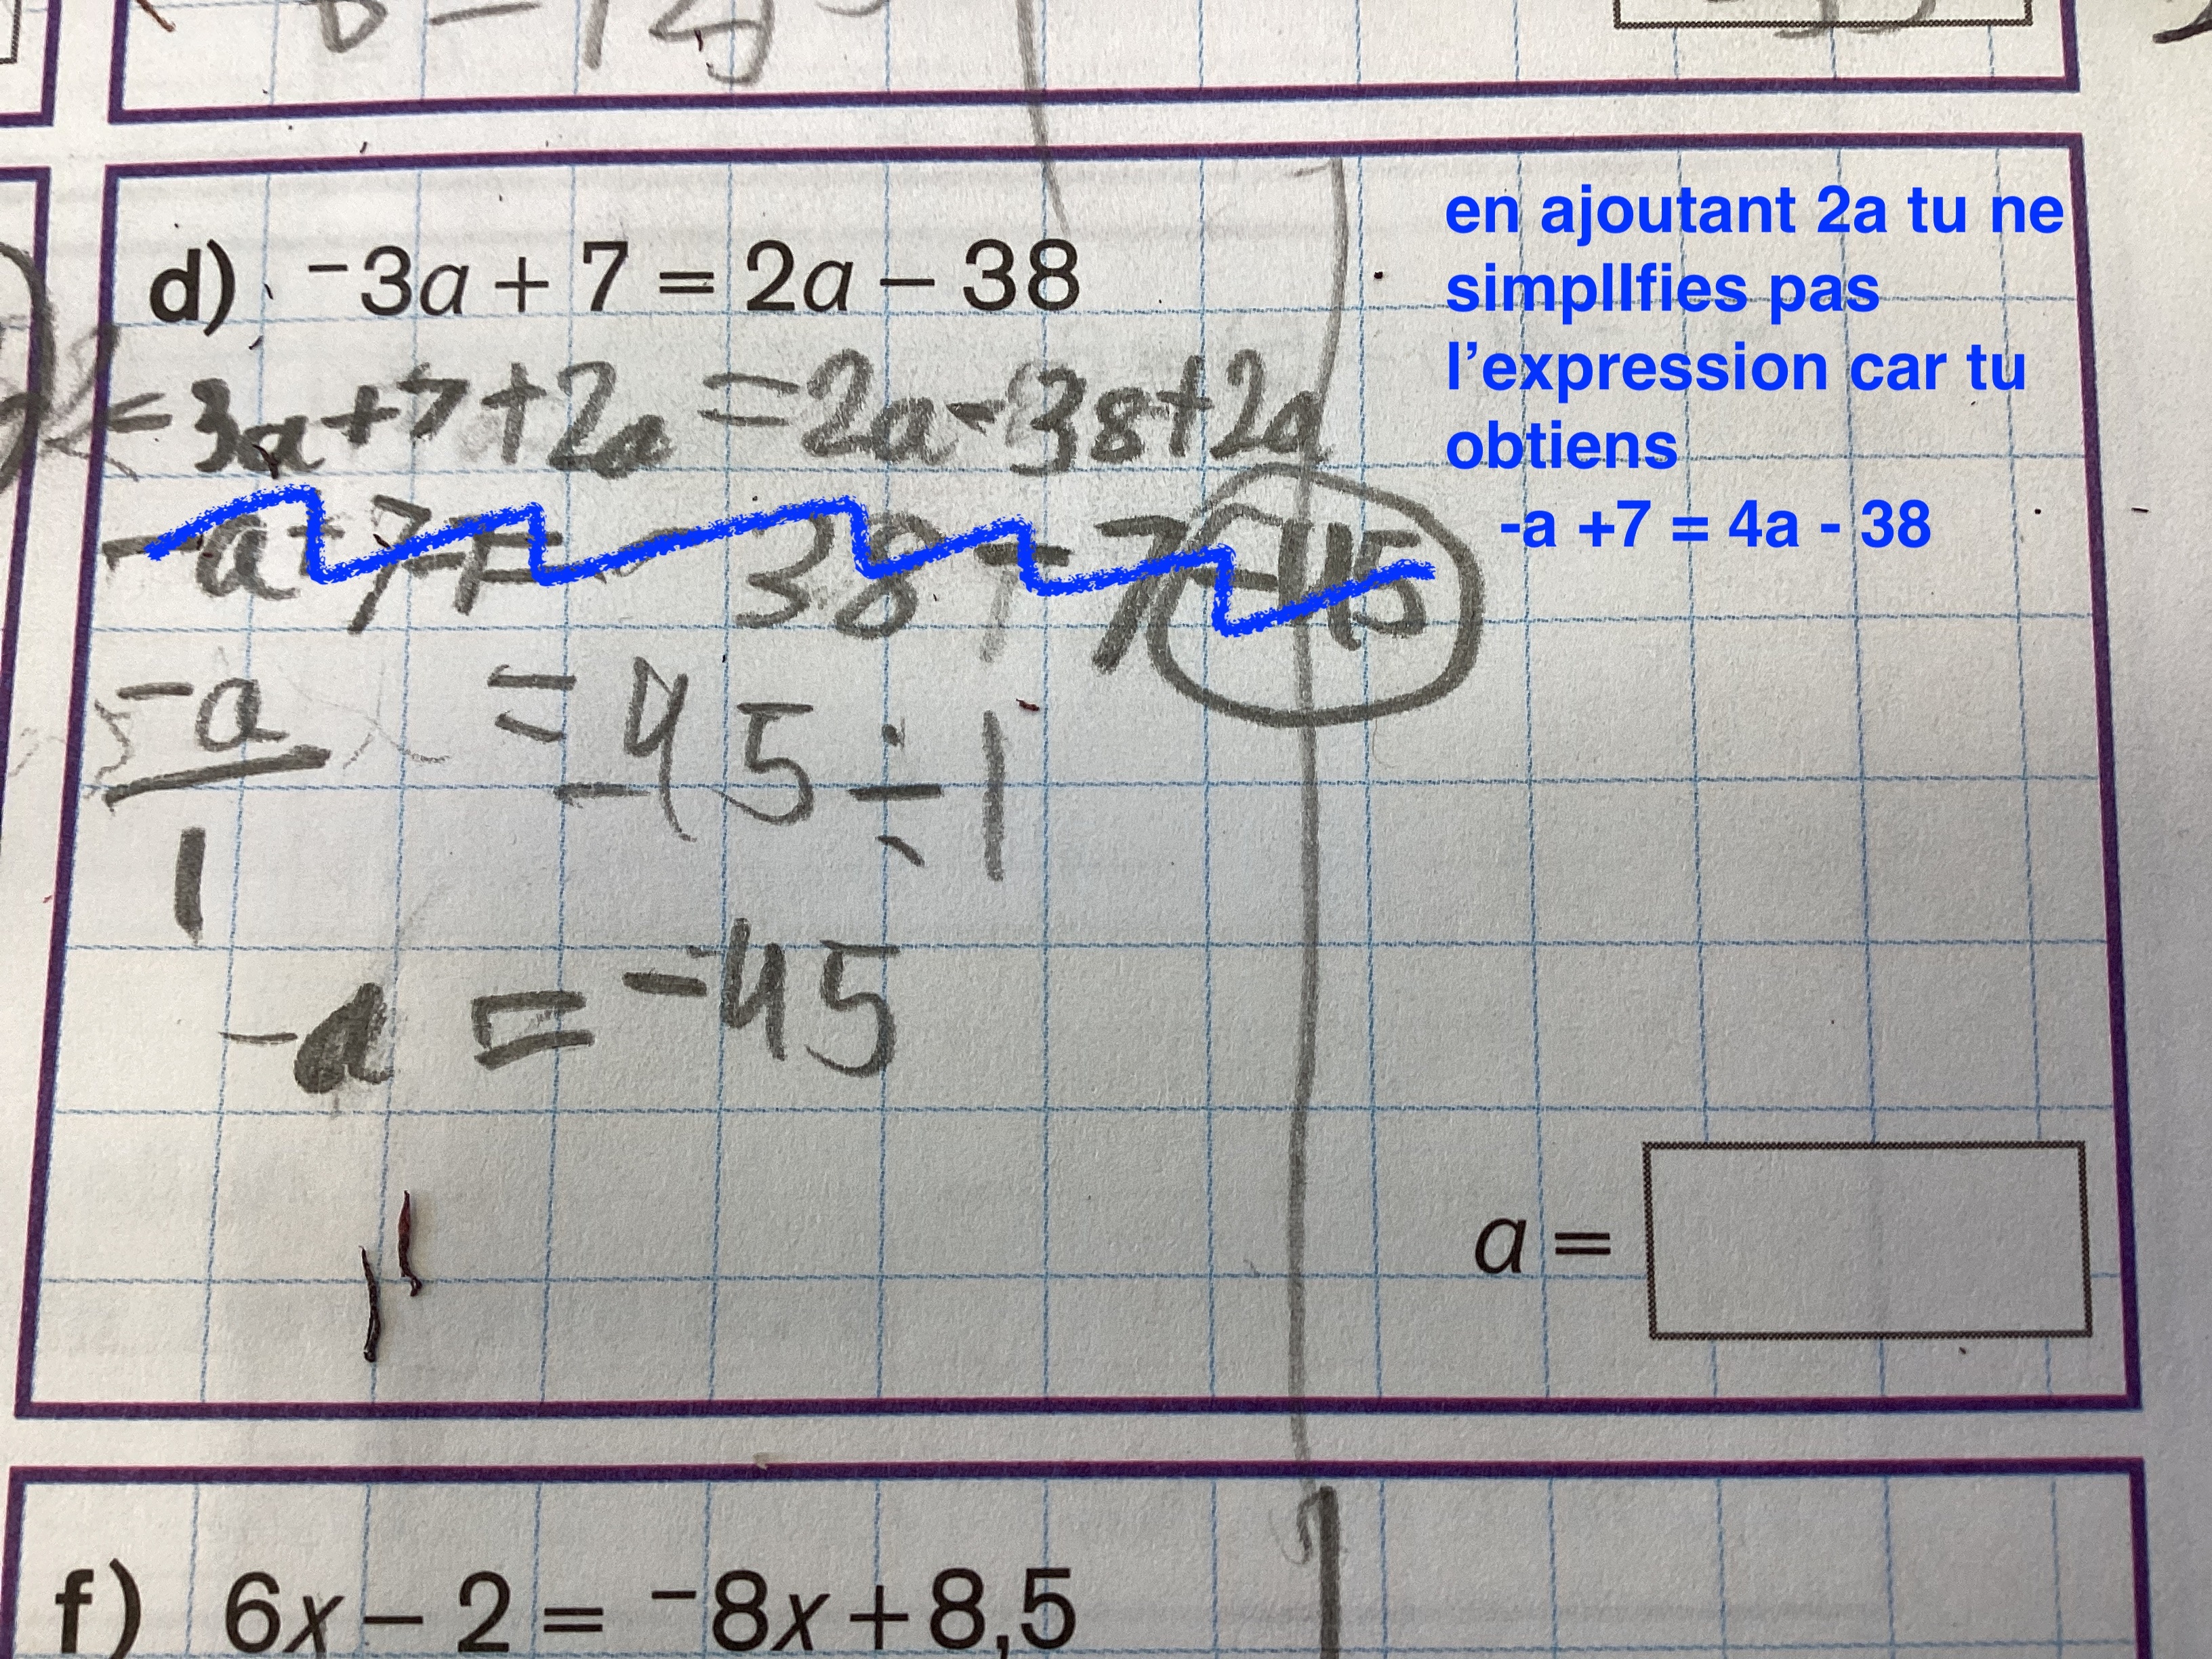 d) ⁻3a + 7 = 2a − 38
en ajoutant 2a tu ne
simplIfies pas
l’expression car tu
obtiens
-a +7 = 4a - 38
-3a+7+2a = 2a-38+2a
-a+7-7= -38-7 -45
-a = -45 ÷ 1
1
-a = -45
a =
f) 6x − 2 = ⁻8x + 8,5